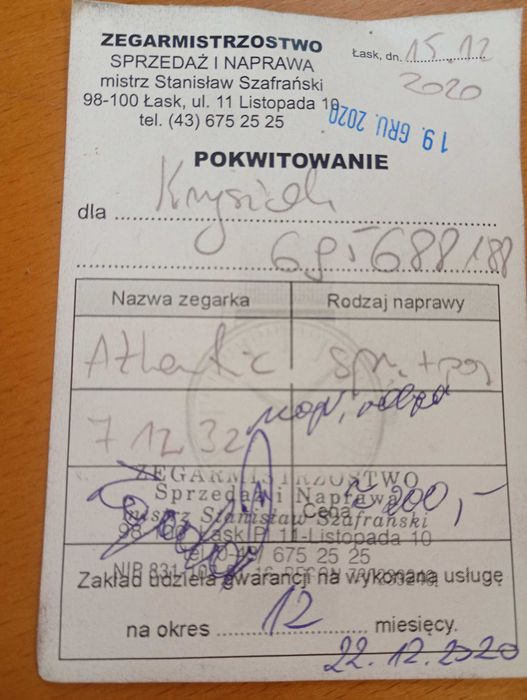 ZEGARMISTRZOSTWO
SPRZEDAŻ I NAPRAWA
mistrz Stanisław Szafrański
98-100 Łask, ul. 11 Listopada 10
tel. (43) 675 25 25
Łask, dn. 15.12
2020
19. GRU. 2020
POKWITOWANIE
dla Krysiak
695688188
Nazwa zegarka Rodzaj naprawy
Atlantic spr. + poj
71232
ZEGARMISTRZOSTWO
Sprzedaż i Naprawa
mistrz Stanisław Szafrański
Cena 200,-
98-100 Łask, Pl. 11-Listopada 10
675 25 25
Zakład udziela gwarancji na wykonaną usługę
na okres 12 miesięcy.
22.12.2020